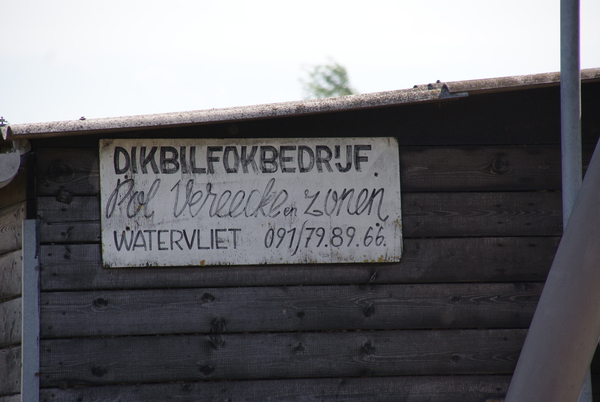 DIKBILFOKBEDRIJF.
Pol Vereecke en zonen
WATERVLIET 091/79.89.66.